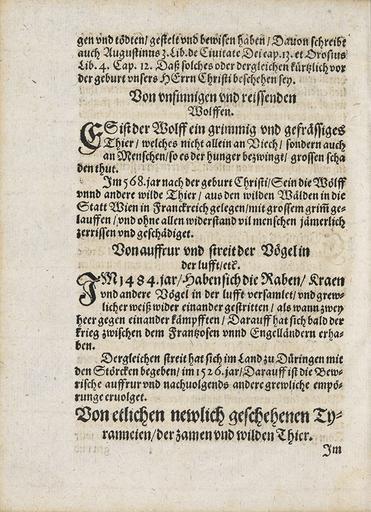 gen vnd tödten / gestelt vnd bewisen haben / Dauon schreibt
auch Augustinus 3. Lib. de Ciuitate Dei cap. 13. et Orosius
Lib. 4. Cap. 12. Daß solches oder dergleichen kürtzlich vor
der geburt vnsers HErrn Christi beschehen sey.
Von vnsinnigen vnd reissenden
Wolffen.
ES ist der Wolff ein grimmig vnd gefrässiges
Thier / welches nicht allein an Viech / sondern auch
an Menschen / so es der hunger bezwingt / grossen scha
den thut.
Im 568. jar nach der geburt Christi / Sein die Wölff
vnnd andere wilde Thier / aus den wilden Wälden in die
Statt Wien in Franckreich gelegen / mit grossem grim̃ ge-
lauffen / vnd ohne allen widerstand vil menschen jämerlich
zerrissen vnd geschädiget.
Von auffrur vnd streit der Vögel in
der lufft / etc.
IM 1484. jar / Haben sich die Raben / Kraen
vnd andere Vögel in der lufft versamlet / vnd grew-
licher weiß wider einander gestritten / als wann zwey
heer gegen einander kämpfften / Darauff hat sich bald der
krieg zwischen dem Frantzosen vnnd Engelländern erha-
ben.
Dergleichen streit hat sich im Land zu Düringen mit
den Störcken begeben / im 1526. jar / Darauff ist die Bew-
rische auffrur vnd nachuolgends andere grewliche empö-
runge eruolget.
Von etlichen newlich geschehenen Ty-
ranneien / der zamen vnd wilden Thier.
Im